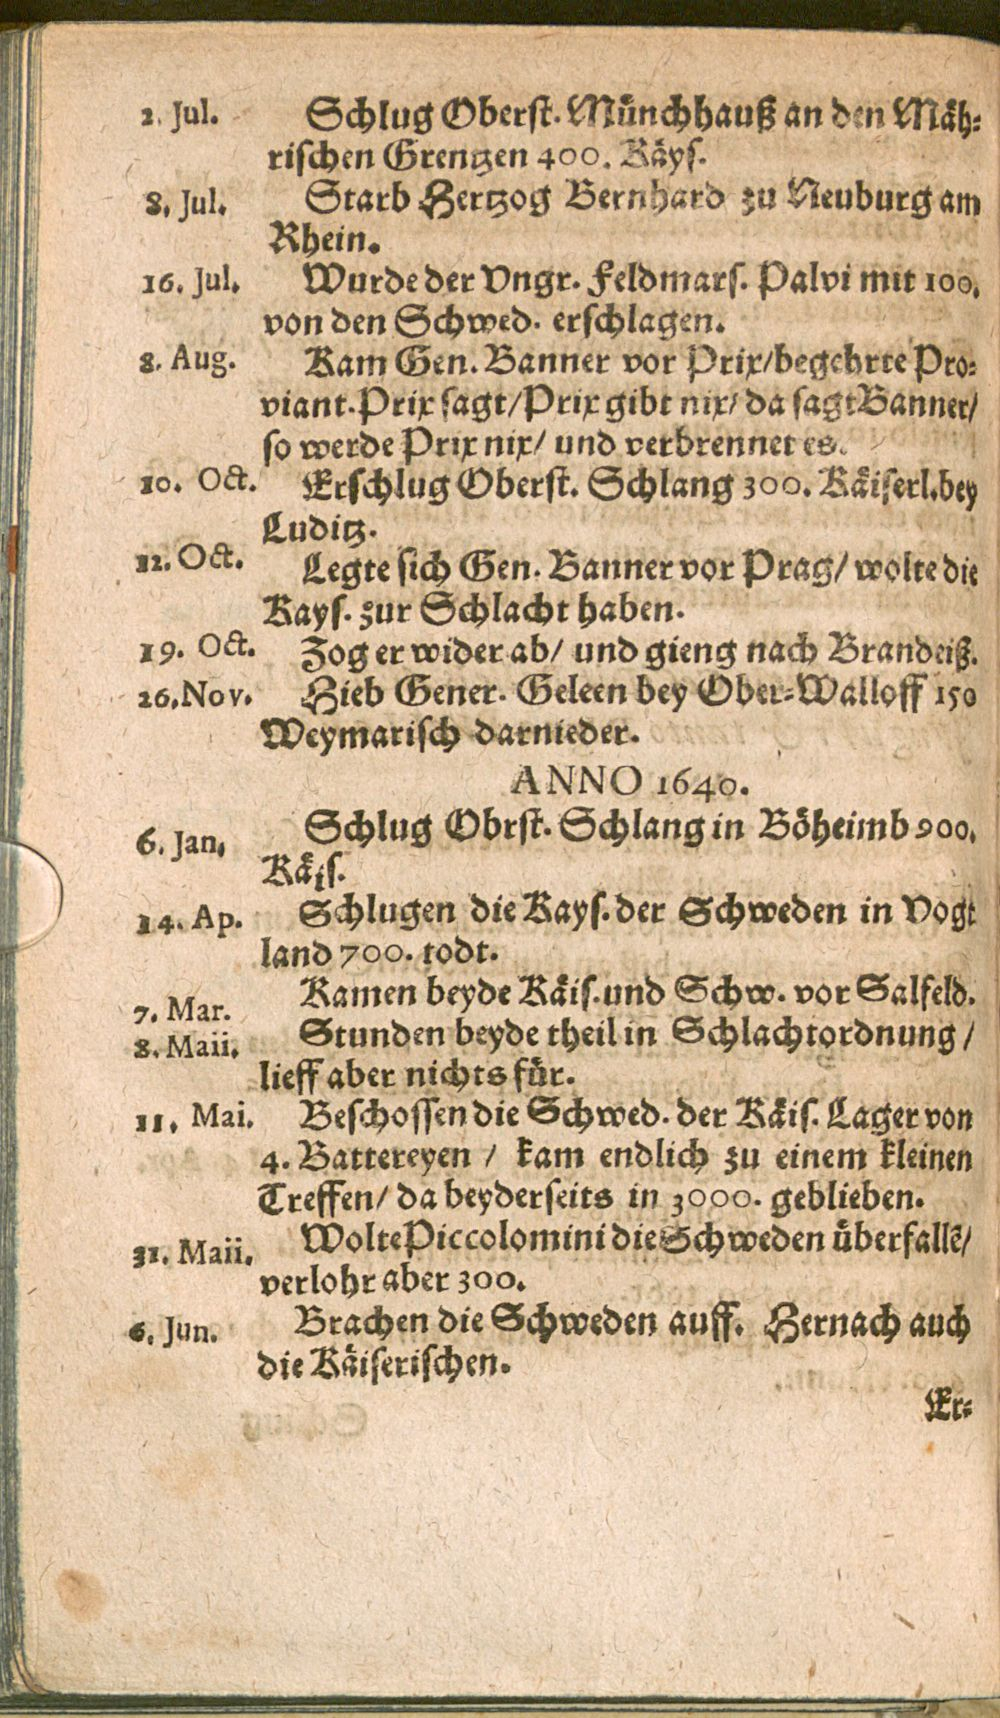 2. Jul. Schlug Oberst. Münchhauß an den Mäh⸗
rischen Grentzen 400. Käys.
8. Jul. Starb Hertzog Bernhard zu Neuburg am
Rhein.
16. Jul. Wurde der Vngr. Feldmars. Palvi mit 100.
von den Schwed. erschlagen.
8. Aug. Kam Gen. Banner vor Prix/ begehrte Pro⸗
viant. Prix sagt/ Prix gibt nix/ da sagt Banner/
so werde Prix nix/ und verbrennet es.
10. Oct. Erschlug Oberst. Schlang 300. Käiserl. bey
Luditz.
12. Oct. Legte sich Gen. Banner vor Prag/ wolte die
Kays. zur Schlacht haben.
19. Oct. Zog er wider ab/ und gieng nach Brandeiß.
26. Nov. Hieb Gener. Geleen bey Ober⸗Walloff 150
Weymarisch darnieder.
ANNO 1640.
6. Jan. Schlug Obrst. Schlang in Böheimb 900.
Käis.
14. Ap. Schlugen die Kays. der Schweden in Vogt
land 700. todt.
7. Mar. Kamen beyde Käis. und Schw. vor Salfeld.
8. Maii. Stunden beyde theil in Schlachtordnung /
lieff aber nichts für.
11. Mai. Beschossen die Schwed. der Käis. Lager von
4. Battereyen / kam endlich zu einem kleinen
Treffen/ da beyderseits in 3000. geblieben.
31. Maii. Wolte Piccolomini die Schweden überfallē/
verlohr aber 300.
6. Jun. Brachen die Schweden auff. Hernach auch
die Käiserischen.
Er⸗